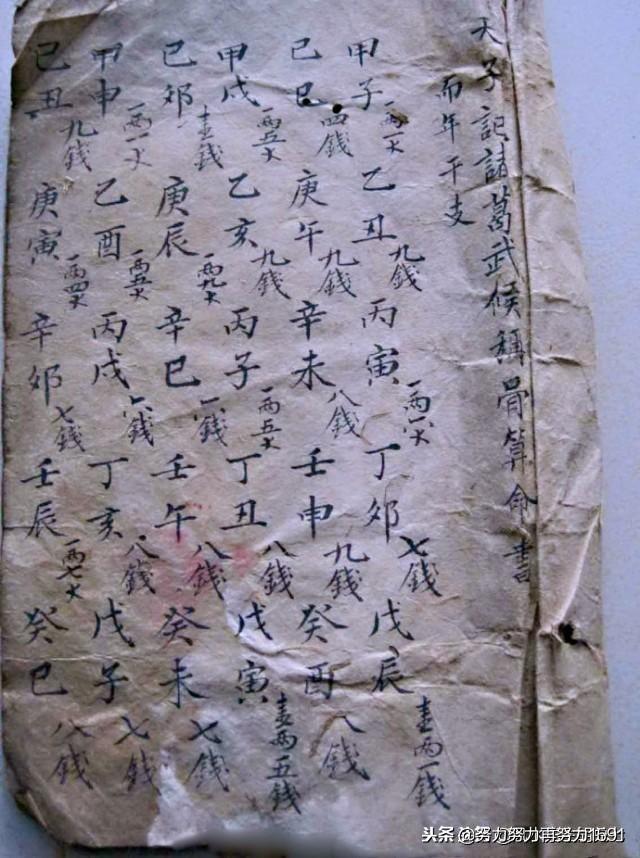 天子記諸葛武候稱骨算命書
而年干支
甲子 一両一大 乙丑 九錢 丙寅 丁卯 七錢 戊辰 壹両一錢
己巳 四錢 庚午 九錢 辛未 八錢 壬申 九錢 癸酉 八錢
甲戌 一両五大 乙亥 九錢 丙子 一両五大 丁丑 八錢 戊寅 壹両五錢
己卯 壹錢 庚辰 一両九大 辛巳 錢 壬午 八錢 癸未 七錢
甲申 一両一大 乙酉 一両五大 丙戌 六錢 丁亥 八錢 戊子 七錢
己丑 九錢 庚寅 一両四大 辛卯 七錢 壬辰 一両七大 癸巳 八錢
头条 @努力努力再努力